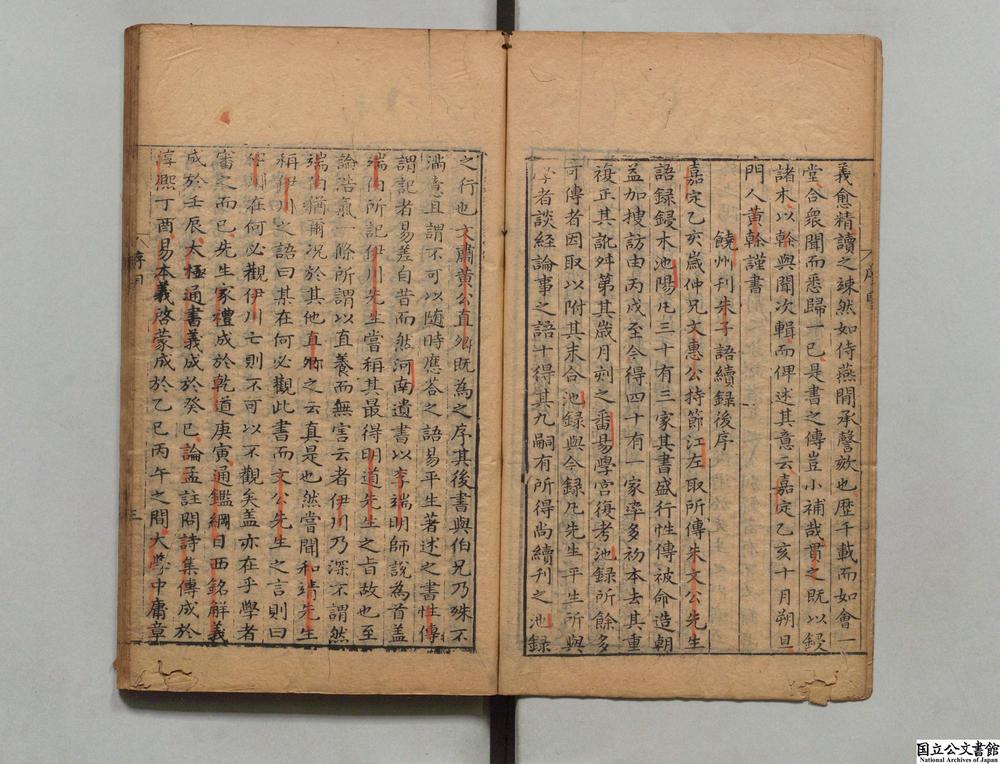 義愈精讀之竦然如侍燕閒承謦欬也歷千載而如會一
堂合衆聞而悉歸一已是書之傳豈小補哉貫之既以鋟
諸木以榦與聞次輯而俾述其意云嘉定乙亥十月朔旦
門人黃榦謹書
饒州刊朱子語續録後序
嘉定乙亥歲仲兄文惠公持節江左取所傳朱文公先生
語録鋟木池陽凡三十有三家其書盛行性傳被命造朝
益加搜訪由丙戌至今得四十有一家率多初本去其重
複正其訛舛第其歲月刻之番昜學宮復考池録所餘多
可傳者因取以附其末合池録與今録凡先生平生所與
學者談經論事之語十得其九嗣有所得尚續刊之池録
之行也文肅黃公直卿既為之序其後書與伯兄乃殊不
滿意且謂不可以隨時應荅之語易平生著述之書性傳
謂記者易差自昔而然河南遺書以李端明師說為首盖
端伯所記伊川先生嘗稱其最得明道先生之旨故也至
論浩氣一條所謂以直養而無害云者伊川乃深不謂然
端伯猶爾况於其他直卿之云真是也然嘗聞和靖先生
稱伊川之語曰某在何必觀此書而文公先生之言則曰
伊川在何必觀伊川亡則不可以不觀矣盖亦在乎學者
審之而已先生家禮成於乾道庚寅通鑑綱目西銘解義
成於壬辰太極通書義成於癸巳論孟註問詩集傳成於
淳熙丁酉易本義啓蒙成於乙巳丙午之間大學中庸章
序目
三
国立公文書館
National Archives of Japan